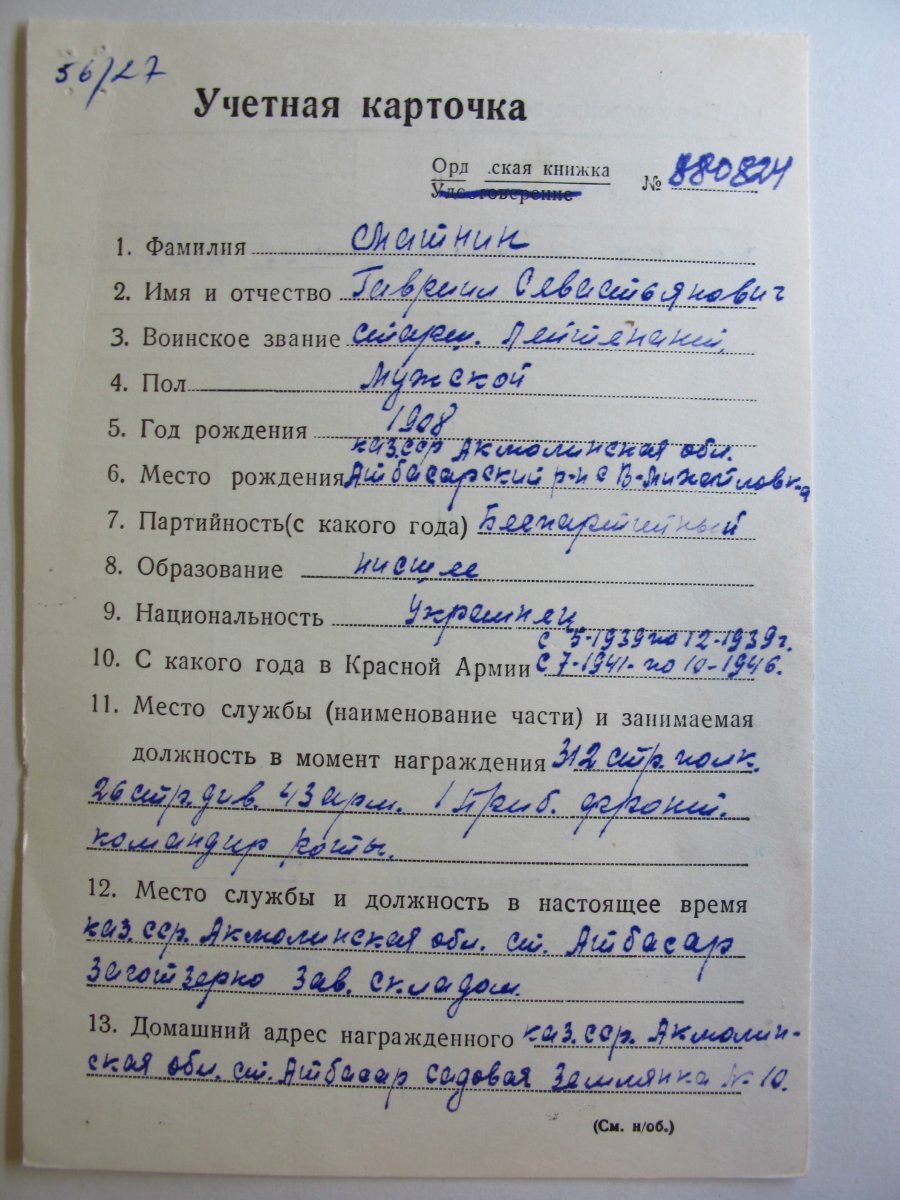 56/27
Учетная карточка
Орд .ская книжка
Удостоверение
№ 880824
1. Фамилия Сматнин
2. Имя и отчество Гавриил Севастьянович
3. Воинское звание старш. Лейтенант
4. Пол Мужской
5. Год рождения 1908
каз.сср Акмолинская обл.
6. Место рождения Атбасарский р-н с В-Михайловка
7. Партийность(с какого года) Беспартийный
8. Образование нисшее
9. Национальность Украинец
с 5-1939 по 12-1939г.
10. С какого года в Красной Армии с 7-1941- по 10-1946.
11. Место службы (наименование части) и занимаемая
должность в момент награждения 312 стр. полк.
26 стр. див. 43 арм. 1 Приб. фронт.
командир роты.
12. Место службы и должность в настоящее время
каз.сср. Акмолинская обл. ст. Атбасар
Заготзерно Зав. складом.
13. Домашний адрес награжденного каз.сср. Акмолин-
ская обл. ст. Атбасар Садовая Землянка № 10.
(См. н/об.)